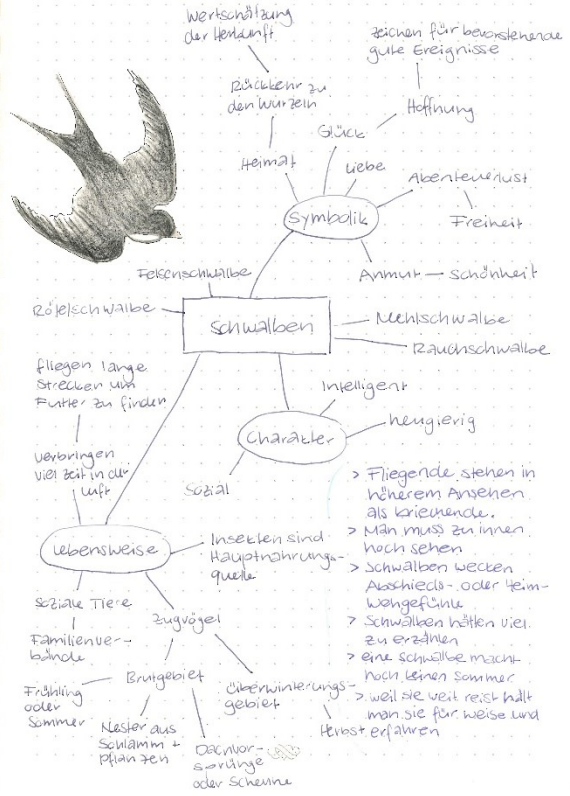 Wertschätzung
der Herkunft
Zeichen für bevorstehende
gute Ereignisse
Rückkehr zu
den Wurzeln
Hoffnung
Glück
Heimat
Liebe
Abenteuerlust
Symbolik
Freiheit
Anmut — Schönheit
Felsenschwalbe
Rötelschwalbe
Schwalben
Mehlschwalbe
Rauchschwalbe
fliegen lange
Strecken um
Futter zu finden
Intelligent
neugierig
Charakter
Sozial
verbringen
viel Zeit in der
Luft
Lebensweise
Insekten sind
Hauptnahrungs-
quelle
Soziale Tiere
Familienver-
bände
Zugvögel
Brutgebiet
Frühling
oder
Sommer
Nester aus
Schlamm +
Pflanzen
Dachvor-
sprünge
oder Scheune
Überwinterungs-
gebiet
Herbst
> Fliegende stehen in
höherem Ansehen
als kriechende.
> Man muss zu ihnen
hoch sehen
> Schwalben wecken
Abschieds- oder Heim-
wehgefühle
> Schwalben hätten viel
zu erzählen
> eine Schwalbe macht
noch keinen Sommer
> weil sie weit reist hält
man sie für weise und
erfahren